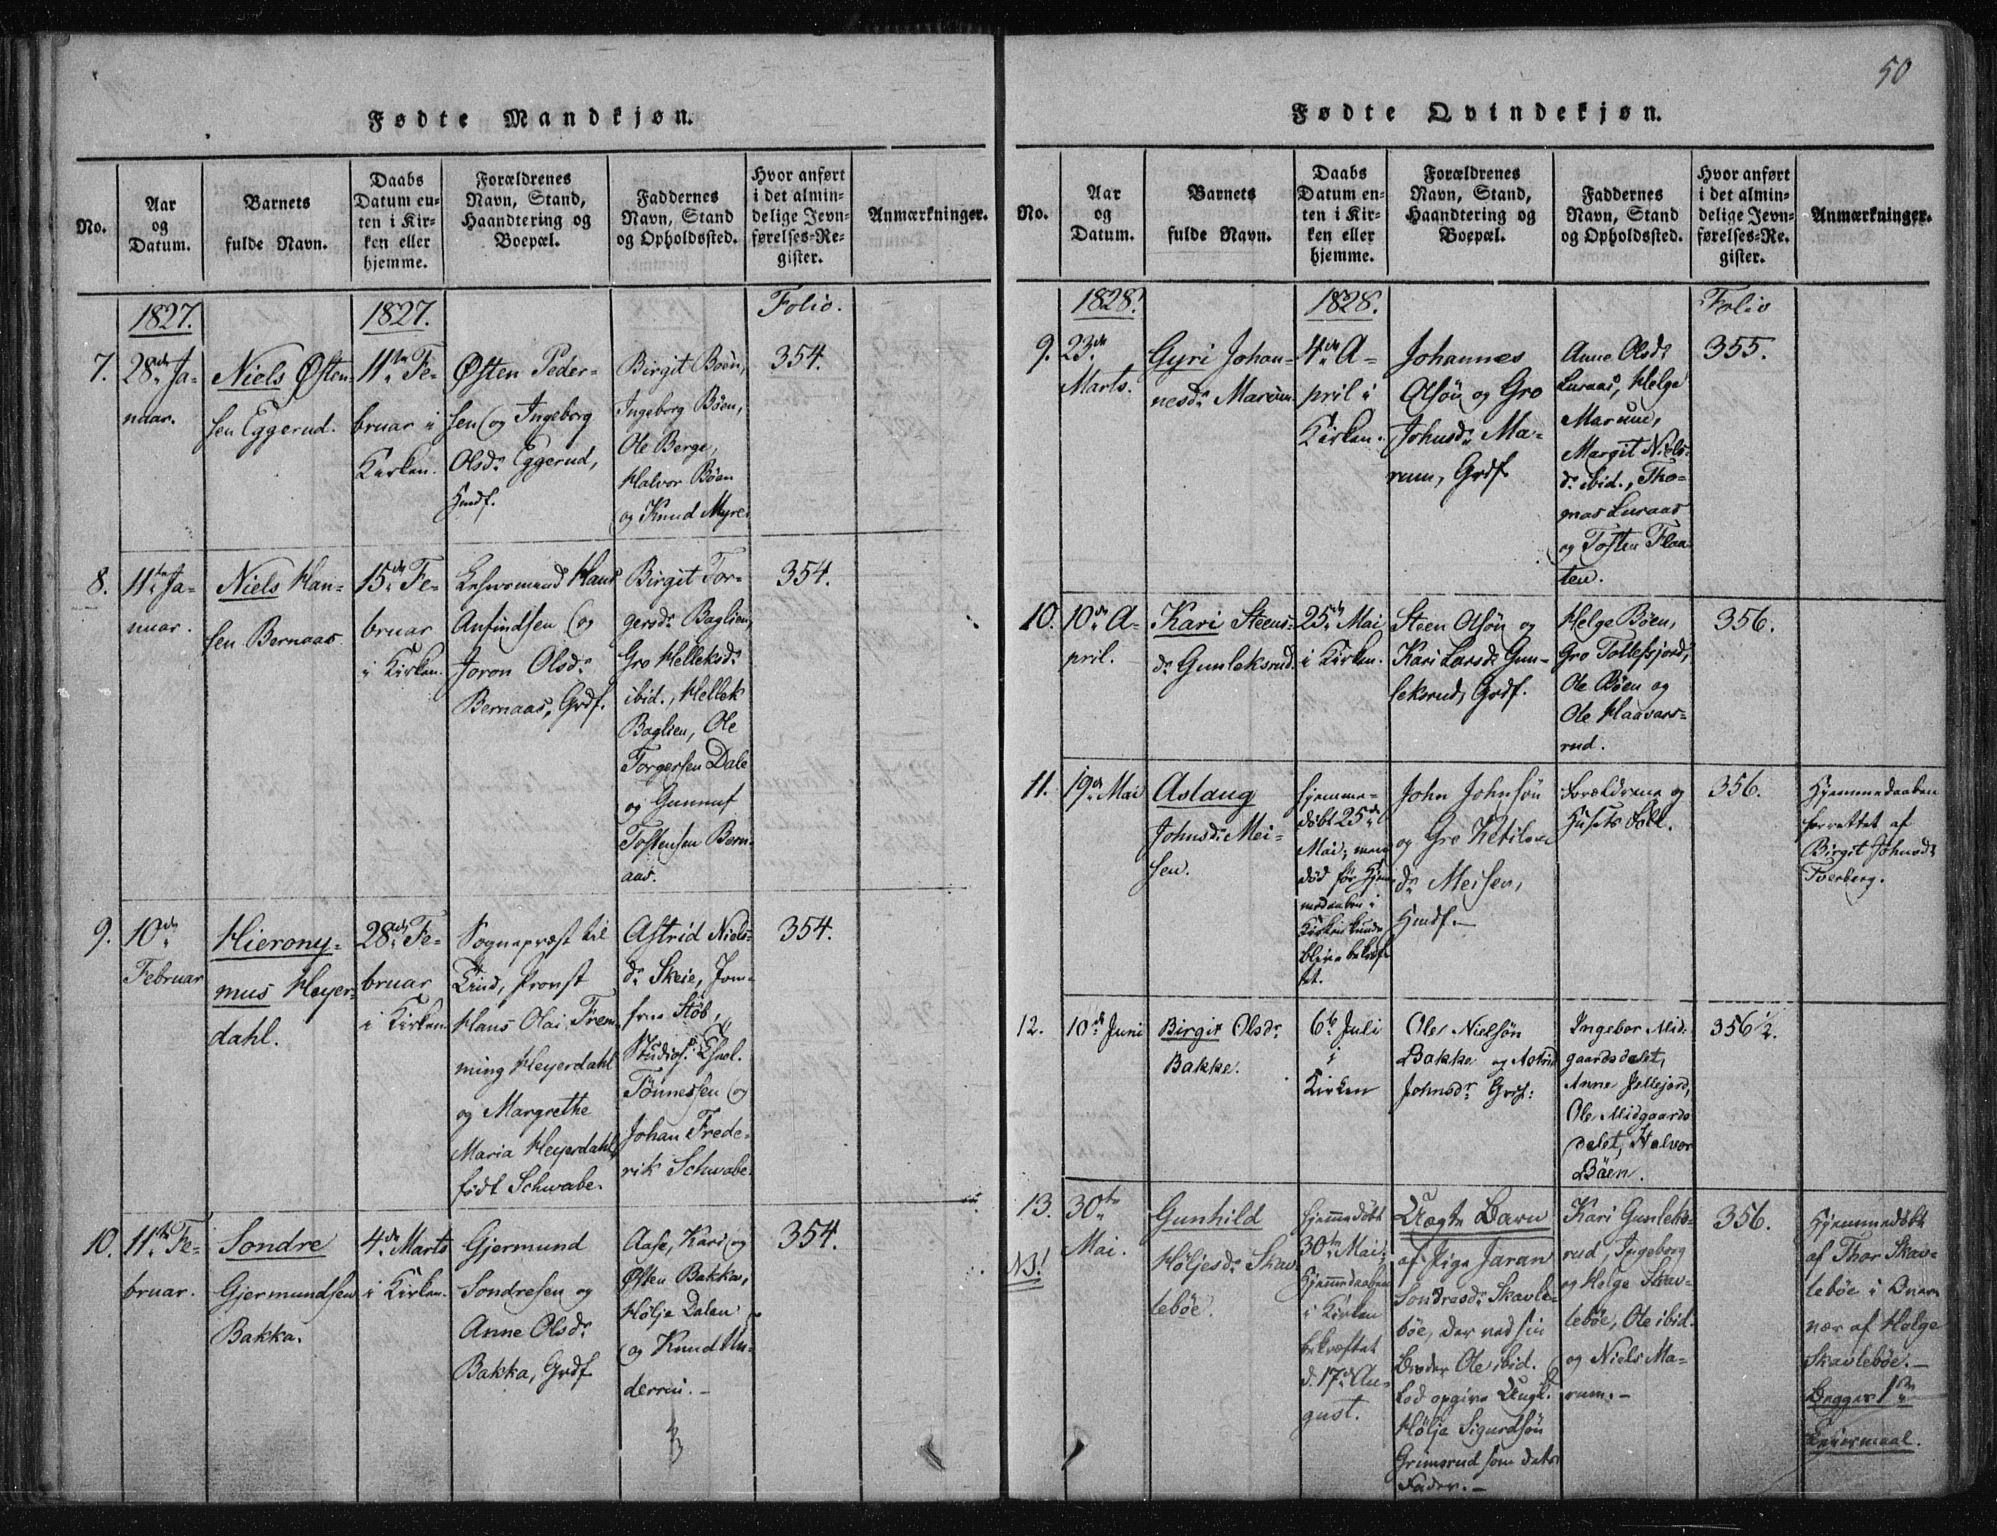 50
Fødte Mandkjøn.
No.
Aar
og
Datum.
Barnets
fulde Navn.
Daabs
Datum en-
ten i Kir-
ken eller
hjemme.
Forældrenes
Navn, Stand,
Haandtering og
Boepæl.
Faddernes
Navn, Stand
og Opholdssted.
Hvor anført
i det almin-
delige Jevn-
førelses-Re-
gister.
Anmærkninger.
1827.
1827.
Folio.
7.
28de Ja-
nuar.
Niels Østen-
sen Eggerud.
11te Fe-
bruar i
Kirken.
Østen Peder-
sen og Ingeborg
Olsdr Eggerud,
Hmdf.
Birgit Bøen,
Ingeborg Bøen,
Ole Berge,
Halvor Bøen
og Knud Myre.
354.
8.
11te Ja-
nuar.
Niels Han-
sen Bernaas.
15de Fe-
bruar
i Kirken.
Lehnsmand Hans
Anfindsen og
Joron Olsdr
Bernaas, Grdf.
Birgit Tor-
gersdr Baglien,
Gro Helleksdr
ibid., Hellek
Baglien, Ole
Torgersen Dale
og Gunnuf
Tostensen Bern-
aas.
354.
9.
10de
Februar
Hierony-
mus Heyer-
dahl.
28de Fe-
bruar
i Kirken.
Sognepræst til
Eind, Provst
Hans Olai Frem-
ming Heyerdahl
og Margrethe
Maria Heyerdahl
født Schwabe.
Astrid Niels-
dr Skeie, Jom-
frue Støb,
Studios.
Tønnessen og
Johan Frede-
rik Schwabe.
354.
10.
11te Fe-
bruar.
Sondre
Gjermundsen
Bakka.
4de Marts
i Kirken.
Gjermund
Sondresen og
Anne Olsdr
Bakka, Grdf
Aase, Kari og
Østen Bakka,
Hølje Dalen
og Knud Un-
derrui.-
354.
Fødte Qvindekjøn.
No.
Aar
og
Datum.
Barnets
fulde Navn.
Daabs
Datum en-
ten i Kir-
ken eller
hjemme.
Forældrenes
Navn, Stand,
Haandtering og
Boepæl.
Faddernes
Navn, Stand
og Opholdssted.
Hvor anført
i det almin-
delige Jevn-
førelses-Re-
gister.
Anmærkninger.
1828.
1828.
Folio
9.
23de
Marts.
Gyri Johan-
nesdr Marum.
4de A-
pril i
Kirken.
Johannes
Olsøn og Gro
Johnsdr Ma-
rum, Grdf
Anne Olsdr
Luraas, Helge
Marum,
Margit Niels-
dr ibid., Tho-
mas Luraas
og Tosten Flaa-
ten.
355.
10.
10de A-
pril.
Kari Steens-
dr Gunleksrud.
25de Mai
i Kirken.
Steen Olsøn og
Kari Larsdr Gun-
leksrud, Grdf.
Helge Bøen,
Gro Tollefsjord,
Ole Bøen og
Ole Haavars-
rud.
356.
11.
19de Mai
Aslaug
Johnsdr Mei-
sen.
Hjemme-
døbt 25de
Mai; men
død før Hjem-
medaaben i
Kirken kunde
blive bekræf-
tet.
John Johnsøn
og Gro Ketils-
dr Meisen,
Hmdf.-
Forældrene og
Husets Folk.
356.
Hjemmedaaben
forrettet af
Birgit Johnsdr
Tverberg.
12.
10de Juni
Birgit Olsdr
Bakke.
6te Juli
i
Kirken
Ole Nielsøn
Bakke og Astrid
Johnsdr Grdf:
Ingebor Mid-
gaardsdalet,
Anne Jellejord,
Ole Midgaards
dalet, Halvor
Bøen.
356 1/2.
13.
NB!
30te
Mai.
Gunhild
Høljesdr Skav-
lebøe.
Hjemmedøbt
30te Mai;
Hjemmedaaben
i Kirken
bekræftet
d. 17de Au-
gust.
Uægte Barn
af Pige Jaran
Sondresdr Skavle-
bøe, der ved sin
Broder Ole ibid.
lod opgive Ungk.
Hølje Sigurdsøn
Grimsrud som dets
Fader.-
Kari Gunleks-
rud, Ingeborg
og Helge Skav-
lebøe, Ole ibid.
og Niels Ma-
rum.-
356.
Hjemmedøbt
af Thor Skav-
lebøe i Over-
vær af Helge
Skavlebøe.-
Begges 1ste
Leiermaal.